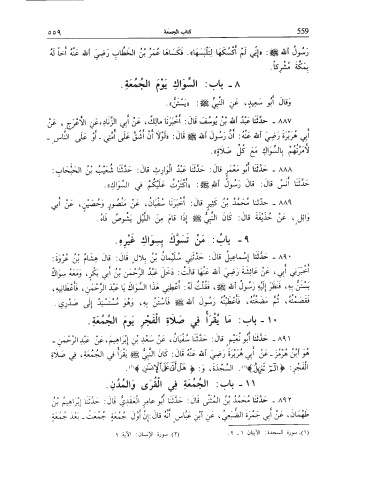 559 كتاب الجمعة ٥٥٩
رَسُولُ اللهِ ﷺ: «إنِّي لَمْ أكْسُكَهَا لِتَلْبَسَهَا». فَكَسَاهَا عُمَرُ بْنُ الخَطَّابِ رَضِيَ اللهُ عَنْهُ أخًا لَهُ
بِمَكَّةَ مُشْرِكًا.
٨ - باب: السِّوَاكِ يَوْمَ الجُمُعَةِ.
وَقَالَ أبُو سَعِيدٍ، عَنِ النَّبِيِّ ﷺ: «يَسْتَنُّ».
٨٨٧ - حَدَّثَنَا عَبْدُ اللهِ بْنُ يُوسُفَ قَالَ: أخْبَرَنَا مَالِكٌ، عَنْ أبِي الزِّنَادِ، عَنِ الأعْرَجِ، عَنْ
أبِي هُرَيْرَةَ رَضِيَ اللهُ عَنْهُ: أنَّ رَسُولَ اللهِ ﷺ قَالَ: «لَوْلاَ أنْ أشُقَّ عَلَى أُمَّتِي - أوْ عَلَى النَّاسِ -
لأمَرْتُهُمْ بِالسِّوَاكِ مَعَ كُلِّ صَلاَةٍ».
٨٨٨ - حَدَّثَنَا أبُو مَعْمَرٍ قَالَ: حَدَّثَنَا عَبْدُ الْوَارِثِ قَالَ: حَدَّثَنَا شُعَيْبُ بْنُ الحَبْحَابِ:
حَدَّثَنَا أنَسٌ قَالَ: قَالَ رَسُولُ اللهِ ﷺ: «أكْثَرْتُ عَلَيْكُمْ فِي السِّوَاكِ».
٨٨٩ - حَدَّثَنَا مُحَمَّدُ بْنُ كَثِيرٍ قَالَ: أخْبَرَنَا سُفْيَانُ، عَنْ مَنْصُورٍ وَحُصَيْنٍ، عَنْ أبِي
وَائِلٍ، عَنْ حُذَيْفَةَ قَالَ: كَانَ النَّبِيُّ ﷺ إذَا قَامَ مِنَ اللَّيْلِ يَشُوصُ فَاهُ.
٩ - باب: مَنْ تَسَوَّكَ بِسِوَاكِ غَيْرِهِ.
٨٩٠ - حَدَّثَنَا إسْمَاعِيلُ قَالَ: حَدَّثَنِي سُلَيْمَانُ بْنُ بِلاَلٍ قَالَ: قَالَ هِشَامُ بْنُ عُرْوَةَ:
أخْبَرَنِي أبِي، عَنْ عَائِشَةَ رَضِيَ اللهُ عَنْهَا قَالَتْ: دَخَلَ عَبْدُ الرَّحْمٰنِ بْنُ أبِي بَكْرٍ، وَمَعَهُ سِوَاكٌ
يَسْتَنُّ بِهِ، فَنَظَرَ إلَيْهِ رَسُولُ اللهِ ﷺ، فَقُلْتُ لَهُ: أعْطِنِي هَذَا السِّوَاكَ يَا عَبْدَ الرَّحْمٰنِ، فَأعْطَانِيهِ،
فَقَصَمْتُهُ، ثُمَّ مَضَغْتُهُ، فَأعْطَيْتُهُ رَسُولَ اللهِ ﷺ فَاسْتَنَّ بِهِ، وَهُوَ مُسْتَسْنِدٌ إلَى صَدْرِي.
١٠ - باب: مَا يُقْرَأُ فِي صَلاَةِ الْفَجْرِ يَوْمَ الجُمُعَةِ.
٨٩١ - حَدَّثَنَا أبُو نُعَيْمٍ قَالَ: حَدَّثَنَا سُفْيَانُ، عَنْ سَعْدِ بْنِ إبْرَاهِيمَ، عَنْ عَبْدِ الرَّحْمٰنِ -
هُوَ ابْنُ هُرْمُزَ - عَنْ أبِي هُرَيْرَةَ رَضِيَ اللهُ عَنْهُ قَالَ: كَانَ النَّبِيُّ ﷺ يَقْرَأُ فِي الْجُمُعَةِ، فِي صَلاَةِ
الْفَجْرِ: ﴿الٓمٓ تَنزِيلُ﴾(١). السَّجْدَةَ، وَ: ﴿هَلْ أَتَىٰ عَلَى الْإِنسَٰنِ﴾(٢).
١١ - باب: الْجُمُعَةِ فِي الْقُرَى وَالْمُدُنِ.
٨٩٢ - حَدَّثَنَا مُحَمَّدُ بْنُ الْمُثَنَّى قَالَ: حَدَّثَنَا أبُو عَامِرٍ الْعَقَدِيُّ قَالَ: حَدَّثَنَا إبْرَاهِيمُ بْنُ
طَهْمَانَ، عَنْ أبِي جَمْرَةَ الضُّبَعِيِّ، عَنِ ابْنِ عَبَّاسٍ أنَّهُ قَالَ: إنَّ أوَّلَ جُمُعَةٍ جُمِّعَتْ - بَعْدَ جُمُعَةٍ
(١) سورة السجدة: الآيتان ١ - ٢. (٢) سورة الإنسان: الآية ١.